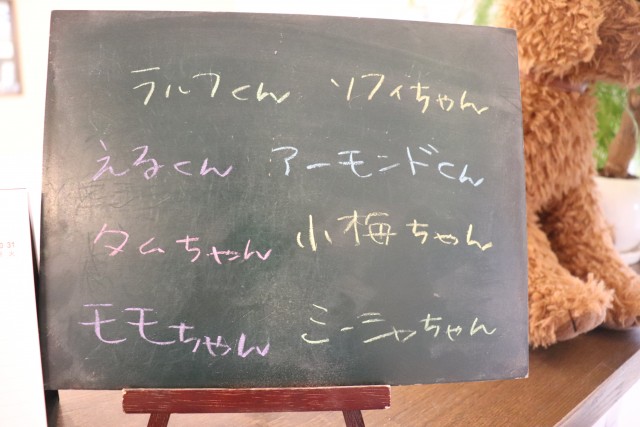 ラルフくん ソフィちゃん
えるくん アーモンドくん
タムちゃん 小梅ちゃん
モモちゃん ミーシャちゃん